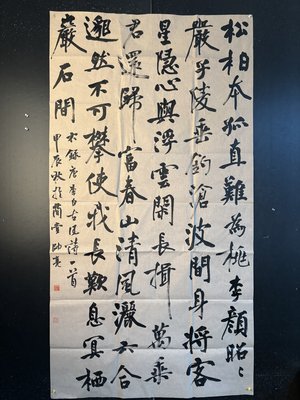 松柏本孤直難為桃李顏昭〻
嚴子陵垂釣滄波間身將客
星隱心與浮雲閑長揖萬乘
君還歸富春山清風灑六合
邈然不可攀使我長歎息冥棲
巖石間
右錄唐李白古風詩一首
甲辰秋於